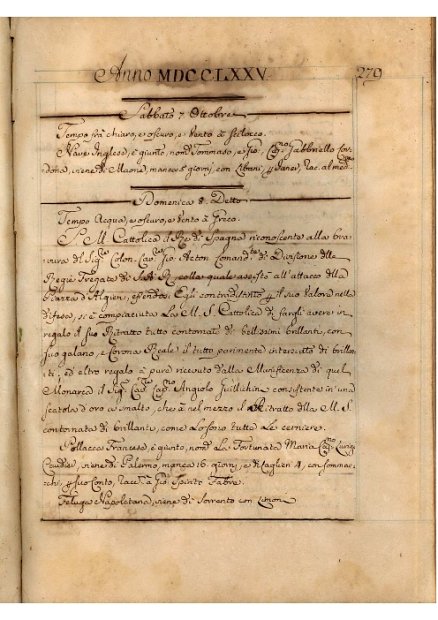 Anno MDCCLXXV. 279
Sabbato 7 Ottobre
Tempo frà chiaro, e oscuro, e Vento à Scilocco.
Nave Inglese, è giunto, nom.
viene di
Domenica 8. Detto
Tempo Acqua, e oscuro, e Vento à Greco.
S. M. Cattolica il Rè di Spagna riconoscente alla bra-
vura del Sig.re Colon. Cav.re Gio. Acton Comand.te di Divisione delle
Regie Fregate di S. A. R. colla quale assistè all'attacco della
Piazza d'Algieri, essendosi Egli contradistinto il suo Valore nella
difesa, si è compiaciuta La M. S. Cattolica di fargli avere in
regalo il suo Ritratto tutto contornato di bellissimi brillanti, con
suo galano, e Corona Reale il tutto parimente intersecata di brillan
ti, ed altro regalo è pure ricevuto dalla Munificenza di quel
Monarca il Sig.re Cav.re Angiolo Guillichini consistente in una
scatola d'oro a smalto, che à nel mezzo il Ritratto della M. S.
contornata di brillanti, come Lo sono tutte Le cerniere.
Pollacca Francese, è giunto, nom. La Fortunata Maria
viene di Palermo, manca 16. giorni, e di Caglieri 4, con
chi, suo Conto, racc. à Gio. Spirito Fabre.
Feluga Napoletana, viene di Sorrento con Limoni